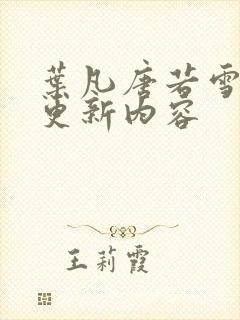 葉凡唐若雪
更新内容
王莉霞